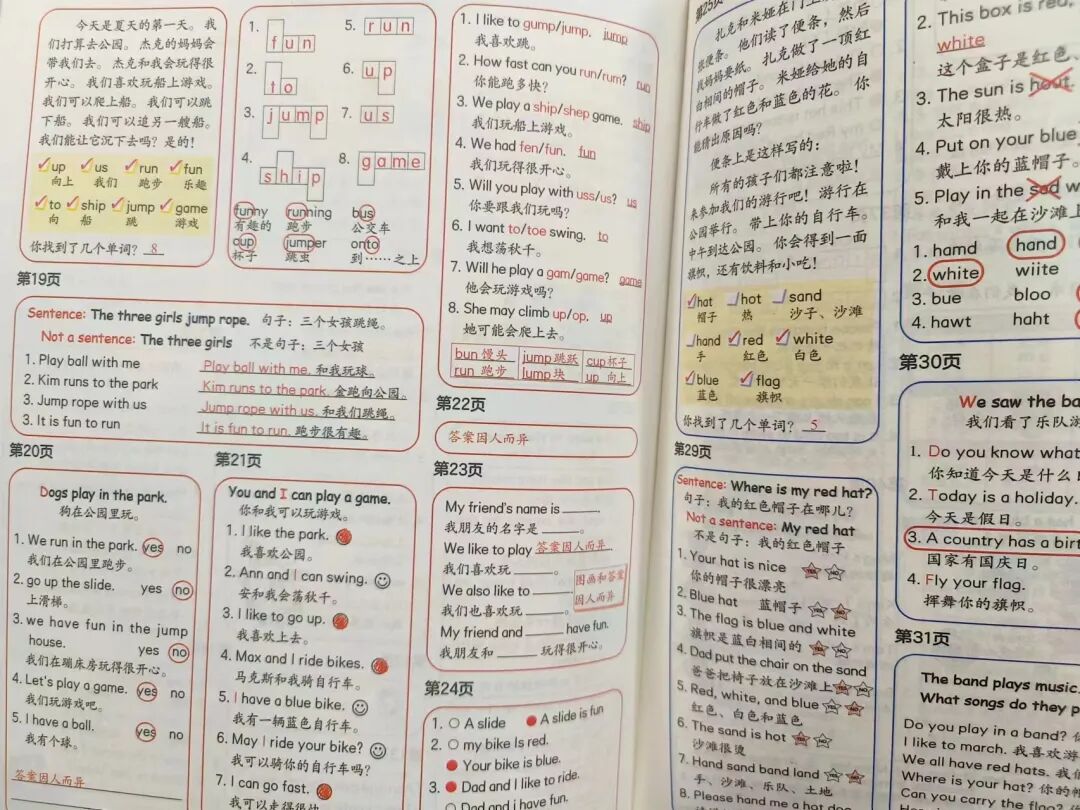 今天是夏天的第一天。我
们打算去公园。杰克的妈妈会
带我们去。杰克和我会玩得很
开心。我们喜欢玩船上游戏。
我们可以爬上船。我们可以跳
下船。我们可以追另一艘船。
我们能让它沉下去吗？是的！
up us run fun
向上 我们 跑步 乐趣
to ship jump game
向 船 跳 游戏
你找到了几个单词？ 8
1. fun
2. to
3. jump
4. ship
5. run
6. up
7. us
8. game
funny running bus
有趣的 跑步 公交车
cup jumper onto
杯子 跳虫 到……之上
第19页
Sentence: The three girls jump rope. 句子：三个女孩跳绳。
Not a sentence: The three girls 不是句子：三个女孩
1. Play ball with me Play ball with me. 和我玩球。
2. Kim runs to the park Kim runs to the park. 金跑向公园。
3. Jump rope with us Jump rope with us. 和我们跳绳。
3. It is fun to run It is fun to run. 跑步很有趣。
第20页
Dogs play in the park.
狗在公园里玩。
1. We run in the park. yes no
我们在公园里跑步。
2. go up the slide. yes no
上滑梯。
3. we have fun in the jump
house. yes no
我们在蹦床房玩得很开心。
4. Let's play a game. yes no
我们玩游戏吧。
5. I have a ball. yes no
我有个球。
答案因人而异
第21页
You and I can play a game.
你和我可以玩游戏。
1. I like the park.
我喜欢公园。
2. Ann and I can swing.
安和我会荡秋千。
3. I like to go up.
我喜欢上去。
4. Max and I ride bikes.
马克斯和我骑自行车。
5. I have a blue bike.
我有一辆蓝色自行车。
6. May I ride your bike?
我可以骑你的自行车吗？
7. I can go fast.
我可以走得很快
1. I like to gump/jump. jump
我喜欢跳。
2. How fast can you run/rum? run
你能跑多快？
3. We play a ship/shep game. ship
我们玩船上游戏。
4. We had fen/fun. fun
我们玩得很开心。
5. Will you play with uss/us? us
你要跟我们玩吗？
6. I want to/toe swing. to
我想荡秋千。
7. Will he play a gam/game? game
他会玩游戏吗？
8. She may climb up/op. up
她可能会爬上去。
bun 馒头 jump 跳跃 cup 杯子
run 跑步 lump 块 up 向上
第22页
答案因人而异
第23页
My friend's name is
我朋友的名字是 。
We like to play 答案因人而异.
我们喜欢玩 。
We also like to
我们也喜欢玩 。
图画和答案
因人而异
My friend and have fun.
我朋友和 玩得很开心。
第24页
1. A slide A slide is fun
2. my bike Is red.
Your bike is blue.
3. Dad and I like to ride.
Dad and i have fun.
第25页
扎克和米娅在门上
张便条。他们读了便条，然后
找妈妈要纸。扎克做了一顶红
白相间的帽子。米娅给她的自
行车做了红色和蓝色的花。你
能猜出原因吗？
便条上是这样写的：
所有的孩子们都注意啦！
来参加我们的游行吧！游行在
公园举行。带上你的自行车。
中午到达公园。你会得到一面
旗帜，还有饮料和小吃！
hat hot sand
帽子 热 沙子、沙滩
hand red white
手 红色 白色
blue flag
蓝色 旗帜
你找到了几个单词？ 5
第29页
Sentence: Where is my red hat?
句子：我的红色帽子在哪儿？
Not a sentence: My red hat
不是句子：我的红色帽子
1. Your hat is nice
你的帽子很漂亮
2. Blue hat 蓝帽子
3. The flag is blue and white
旗帜是蓝白相间的
4. Dad put the chair on the sand
爸爸把椅子放在沙滩上
5. Red, white, and blue
红色、白色和蓝色
6. The sand is hot
沙滩很烫
7. Hand sand band land
手、沙滩、乐队、土地
8. Please hand me a hot dog
2. This box is red,
white
这个盒子是红色、
3. The sun is hout.
太阳很热。
4. Put on your blue
戴上你的蓝帽子。
5. Play in the sad w
和我一起在沙滩上
1. hamd hand
2. white wiite
3. bue bloo
4. hawt haht
第30页
We saw the ba
我们看了乐队游
1. Do you know what
你知道今天是什么日
2. Today is a holiday.
今天是假日。
3. A country has a birt
国家有国庆日。
4. Fly your flag.
挥舞你的旗帜。
第31页
The band plays music.
What songs do they p
Do you play in a band? 你
I like to march. 我喜欢游
We all have red hats. 我们
Where is your hat? 你的帽
Can you carry the flag?